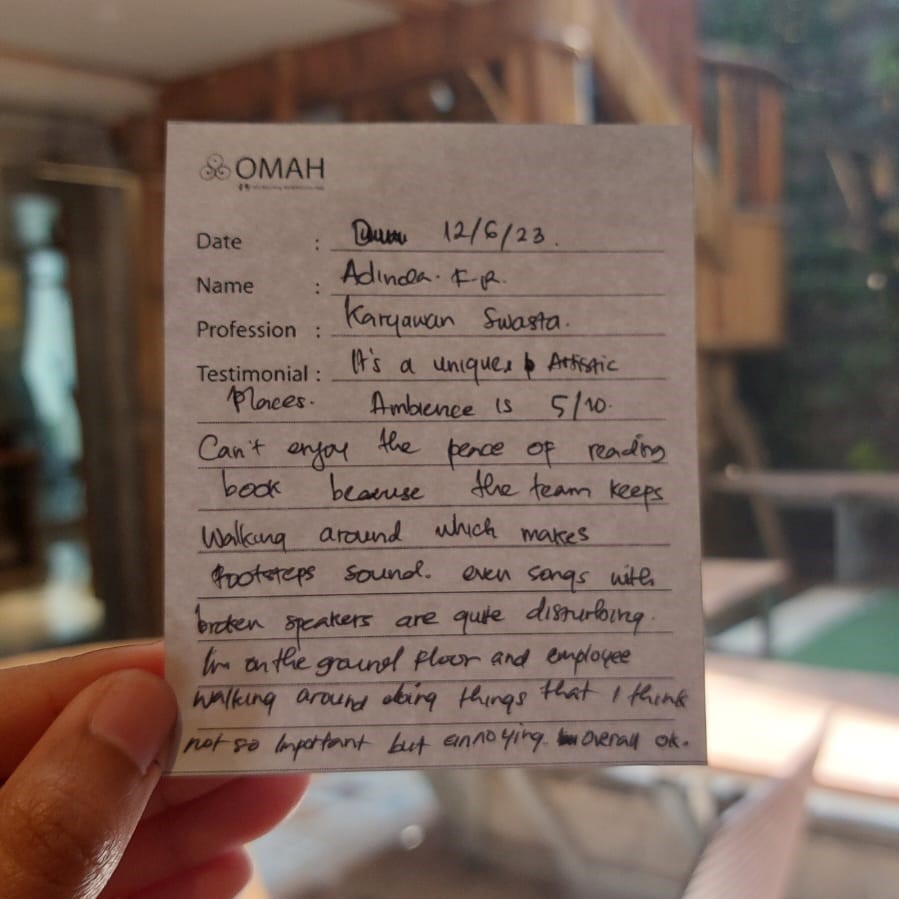 OMAH
Date : 12/6/23.
Name : Adinda. F.R.
Profession : Karyawan Swasta.
Testimonial : It's a unique, Artistic
Places. Ambience is 5/10.
Can't enjoy the peace of reading
book because the team keeps
Walking around which makes
footsteps sound. even songs with
broken speakers are quite disturbing.
I'm on the ground floor and employee
walking around doing things that I think
not so important but annoying. overall ok.